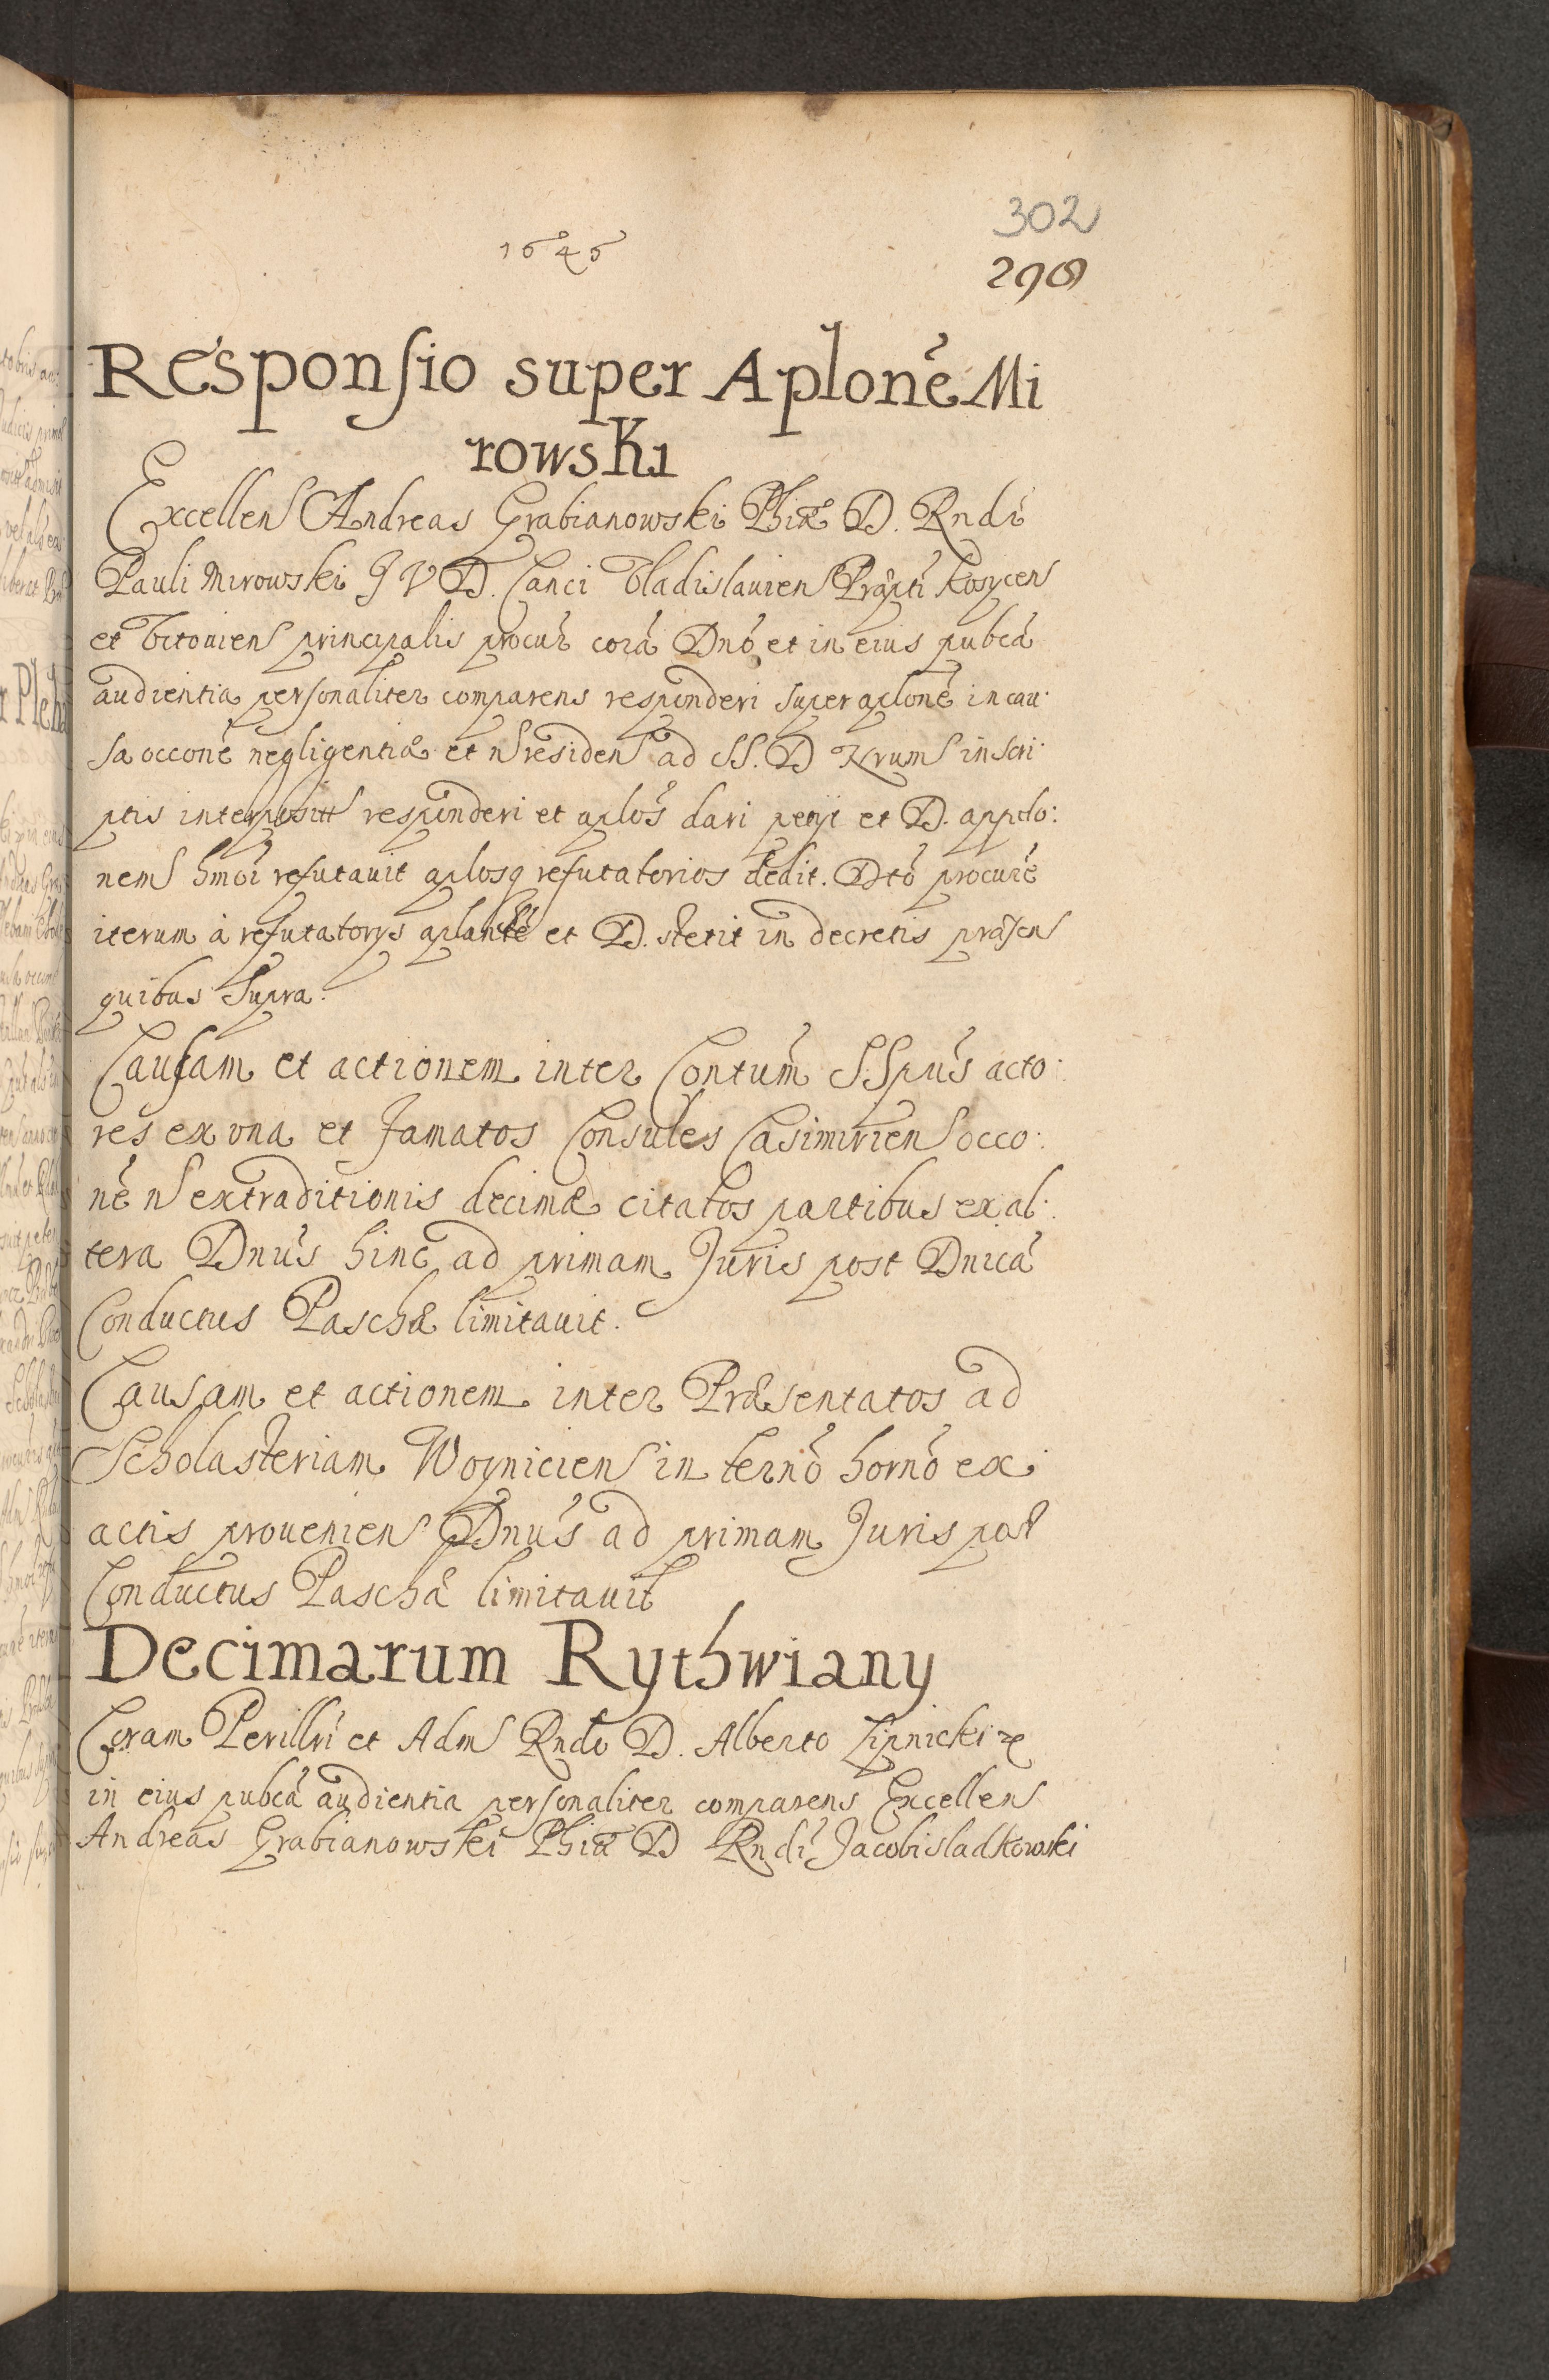 302
1646
298
Responsio super Aplonē Mi
rowski
Excellens Andreas Grabianowski Phiæ D. Rndi
Pauli Mirowski J V D. Canci Vladislavien Præpti Kosycen
et Vitovien principalis procur̄ corā Dnō et in eius pubcā
audientia personaliter comparens responderi super aplonē in cau
sa occonē negligentiæ et n residen ad SS. D Nrum in scri
ptis interposit responderi et aplōs dari petijt et D. appello:
nem hmōi refutauit aplosq refutatorios dedit. Dtō procurē
iterum à refutatorys aplantē et D. stetit in decretis præsen
quibus supra.
Causam et actionem inter Contum̄ S. Spūs acto:
res ex vna et famatos Consules Casimirien occo:
nē n extraditionis decimæ citatos partibus ex al:
tera Dnūs hinc ad primam Juris post Dnicā
Conductus Paschæ limitauit.
Causam et actionem inter Præsentatos ad
Scholasteriam Woynicien in ternō hornō ex
actis prouenien Dnūs ad primam Juris post
Conductus Paschæ limitauit
Decimarum Rythwiany
Coram Perillri et Adm Rndo D. Alberto Lipnicki
in eius pubcā audientia personaliter comparens Excellens
Andreas Grabianowski Phiæ D Rndi Jacobi sladkowski